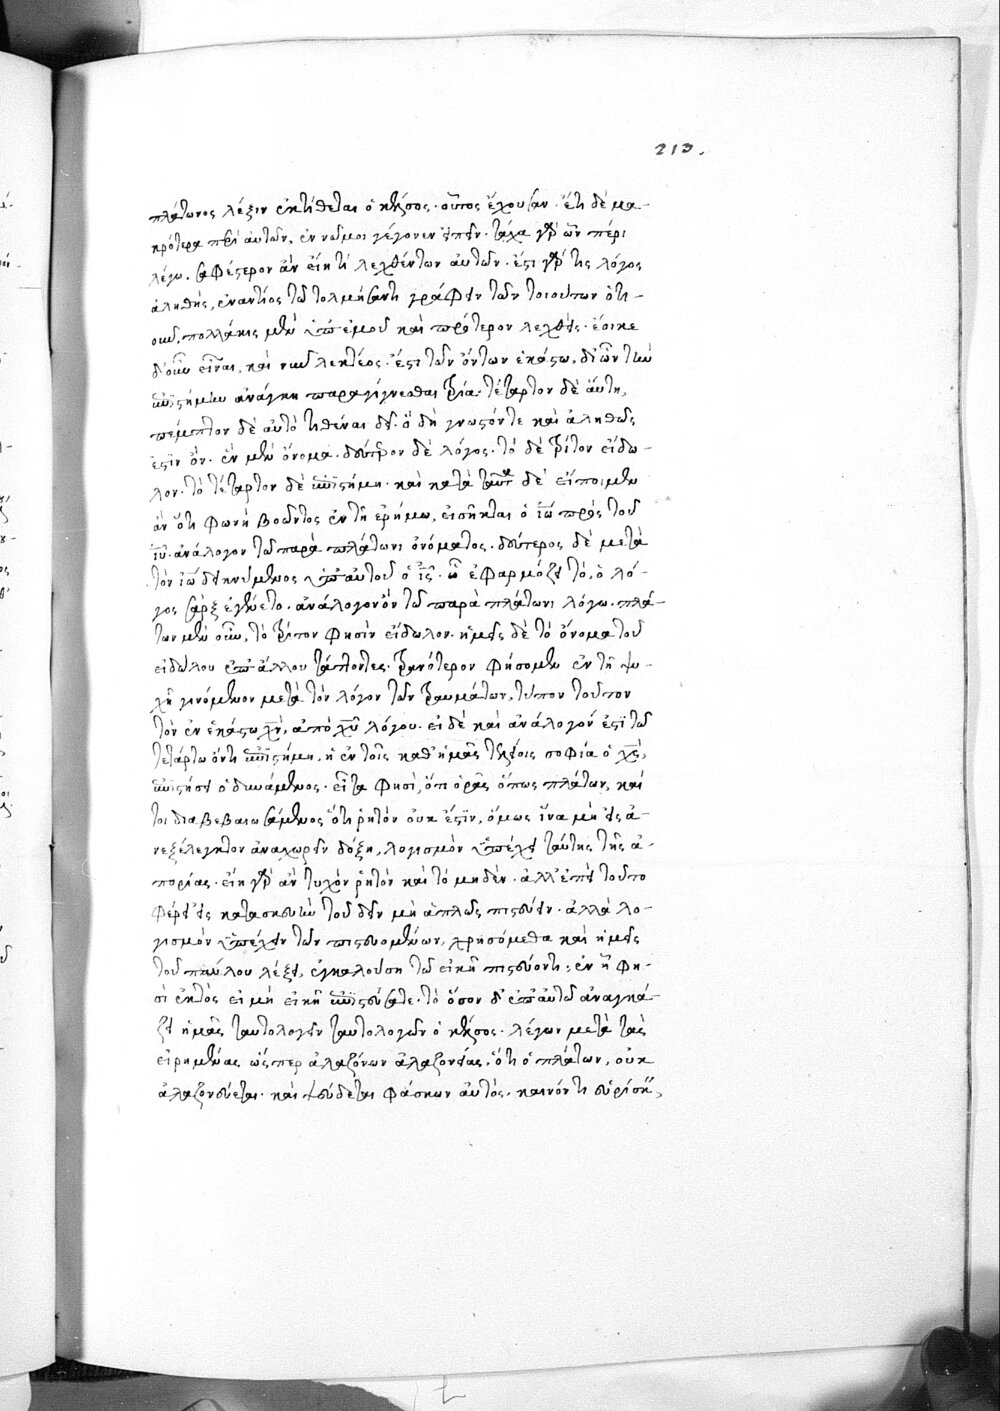 213.
πλάτωνος λέξιν ἐκτίθεται ὁ κέλσος· οὕτως ἔχουσαν· ἔτι δὲ μα-
κρότερα περὶ αὐτῶν, ἐν νῷ μοι γέγονεν εἰπεῖν· τάχα γὰρ ὧν πέρι
λέγω, σαφέστερον ἂν εἴη τι λεχθέντων αὐτῶν· ἔστι γάρ τις λόγος
ἀληθὴς, ἐναντίος τῷ τολμήσαντι γράφειν τῶν τοιούτων ὁτι-
οῦν, πολλάκις μὲν ὑπ' ἐμοῦ καὶ πρότερον λεχθεὶς· ἔοικε
δ' οὖν εἶναι, καὶ νῦν λεκτέος· ἔστι τῶν ὄντων ἑκάστω, δι' ὧν τὴν
ἐπιστήμην ἀνάγκη παραγίγνεσθαι τρία· τέταρτον δὲ αὕτη,
πέμπτον δὲ αὐτὸ τιθέναι δεῖ· ὃ δὴ γνωστόν τε καὶ ἀληθῶς
ἐστὶν ὄν· ἓν μὲν ὄνομα· δεύτερον δὲ λόγος· τὸ δὲ τρίτον εἴδω-
λον· τὸ τέταρτον δὲ ἐπιστήμη· καὶ κατὰ ταῦτα δὲ εἴποιμεν
ἂν ὅτι φωνὴ βοῶντος ἐν τῇ ἐρήμω, εἰσῆκται ὁ ἰω πρὸς τοῦ
ιυ· ἀνάλογον τῷ παρὰ πλάτωνι ὀνόματος· δεύτερος δὲ μετὰ
τὸν ἰω δεικνύμενος ὑπ' αὐτοῦ ὁ ις· ᾧ ἐφαρμόζει τὸ, ὁ λό-
γος σὰρξ ἐγένετο· ἀνάλογον ὂν τῷ παρὰ πλάτωνι λόγω· πλά-
των μὲν οὖν, τὸ τρίτον φησὶν εἴδωλον· ἡμεῖς δὲ τὸ ὄνομα τοῦ
εἰδώλου ἐπ' ἄλλου τάττοντες· τρανότερον φήσομεν ἐν τῇ ψυ-
χῇ γινόμενον μετὰ τὸν λόγον τῶν τραυμάτων, τύπον τοῦτον
τὸν ἐν ἑκάστω χν, ἀπὸ χυ λόγου· εἰ δὲ καὶ ἀνάλογόν ἐστι τῷ
τετάρτω ὄντι ἐπιστήμη, ἡ ἐν τοῖς καθ' ἡμᾶς τελείοις σοφία ὁ χς,
ἐπιστήσει ὁ δυνάμενος· εἶτα φησὶ, ὅτι ὁρᾷς ὅπως πλάτων, καί
τοι διαβεβαιωσάμενος ὅτι ῥητὸν οὐκ ἔστιν, ὅμως ἵνα μὴ εἰς ἀ-
νεξέλεγκτον ἀναχωρεῖν δόξη, λογισμὸν ὑπέχει ταύτης τῆς ἀ-
πορίας· εἴη γὰρ ἂν τυχὸν ῥητὸν καὶ τὸ μηδὲν· ἀλλ' ἐπεὶ τοῦτο
φέρει εἰς κατασκευὴν τοῦ δεῖν μὴ ἁπλῶς πιστεύειν· ἀλλὰ λο-
γισμὸν ὑπέχειν τῶν πιστευομένων, χρησόμεθα καὶ ἡμεῖς
τοῦ παύλου λέξει, ἐγκαλούση τῷ εἰκῇ πιστεύοντι· ἐν ᾗ φη-
σὶ ἐκτὸς εἰ μὴ εἰκῇ ἐπιστεύσατε· τὸ ὅσον δ' ἐπ' αὐτῷ ἀναγκά-
ζει ἡμᾶς ταυτολογεῖν ταυτολογῶν ὁ κέλσος· λέγων μετὰ τὰς
εἰρημένας ὡς περ ἀλαζόνων ἀλαζονείας, ὅτι ὁ πλάτων, οὐκ
ἀλαζονεύεται· καὶ ψεύδεται φάσκων αὐτὸς, καινόν τι εὑρίσκ,